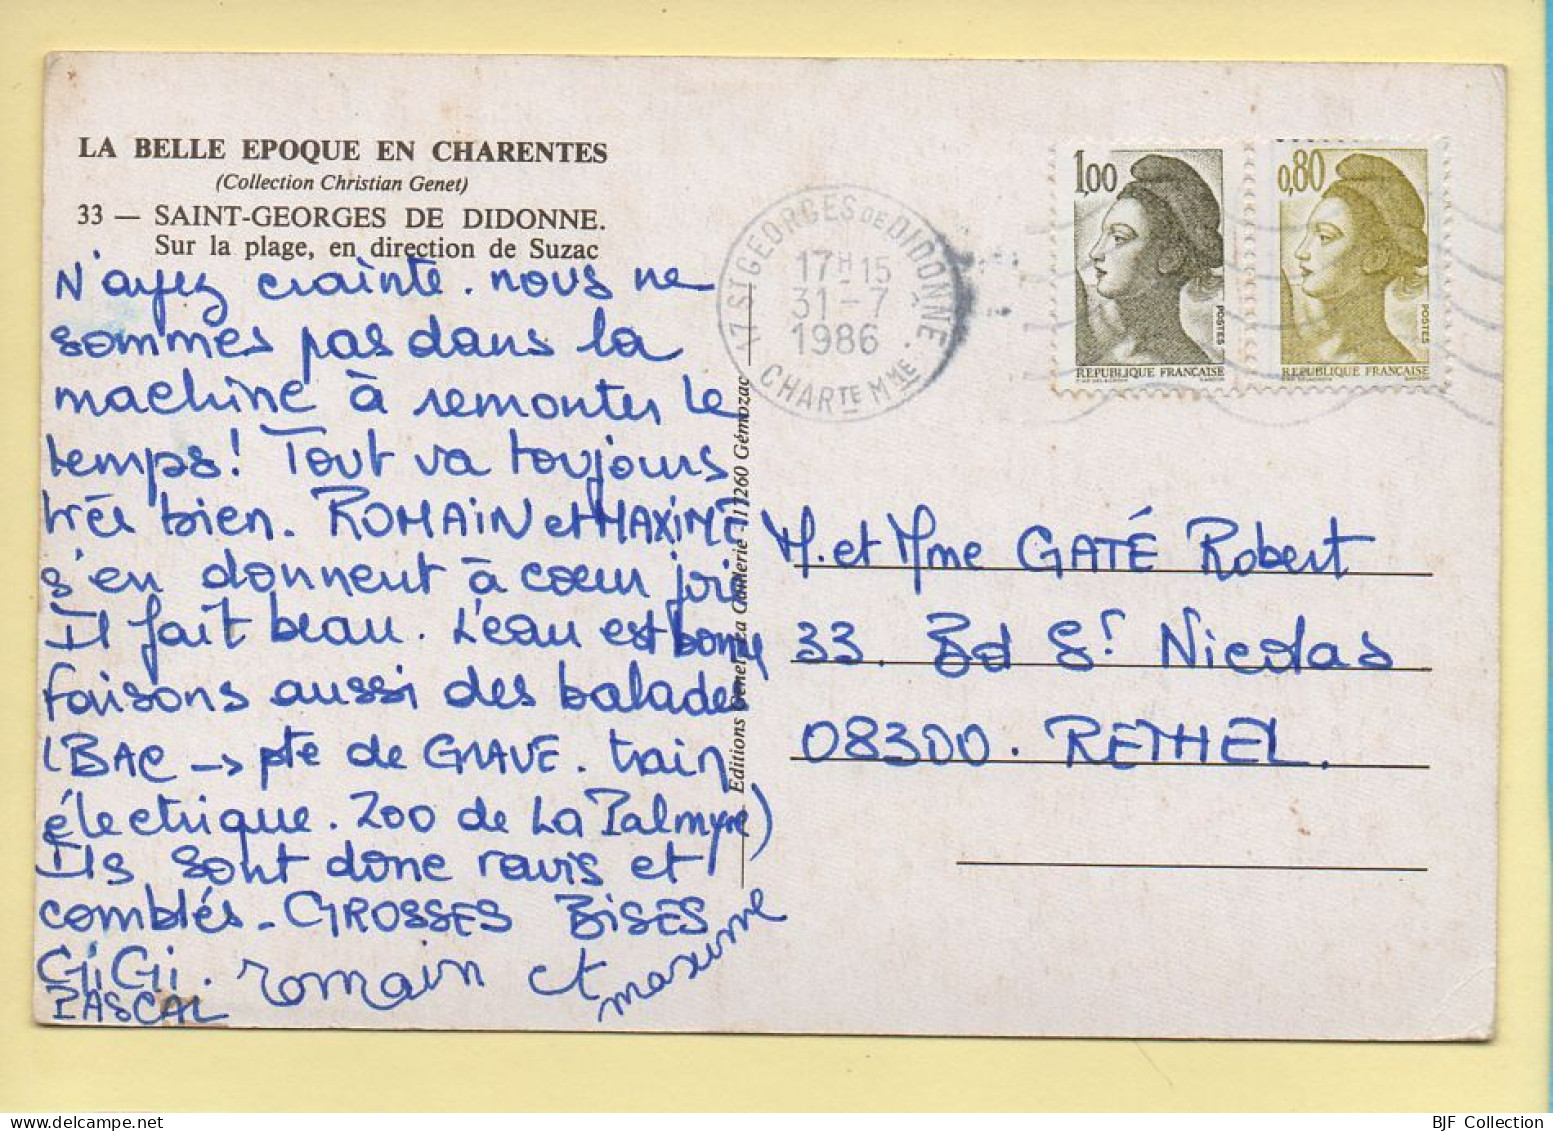 LA BELLE EPOQUE EN CHARENTES
(Collection Christian Genet)
33 — SAINT-GEORGES DE DIDONNE.
Sur la plage, en direction de Suzac
N'ayez crainte. nous ne
sommes pas dans la
machine à remonter le
temps! Tout va toujours
très bien. ROMAIN et MAXIME
s'en donnent à cœur joie
Il fait beau. L'eau est bonne
Faisons aussi des balades
(BAC → pte de GRAVE. train
électrique. Zoo de La Palmyre)
Ils sont donc ravis et
comblés - GROSSES BISES
GiGi. romain et maxime
PASCAL
Editions Generzea Gaillerie - 17260 Gémozac
17 ST GEORGES DE DIDONNE
17H15
31-7
1986
CHARTE MME
1,00
POSTES
REPUBLIQUE FRANÇAISE
0,80
POSTES
REPUBLIQUE FRANÇAISE
M. et Mme GATÉ Robert
33. Bd St Nicolas
08300. RETHEL.
BJF Collection